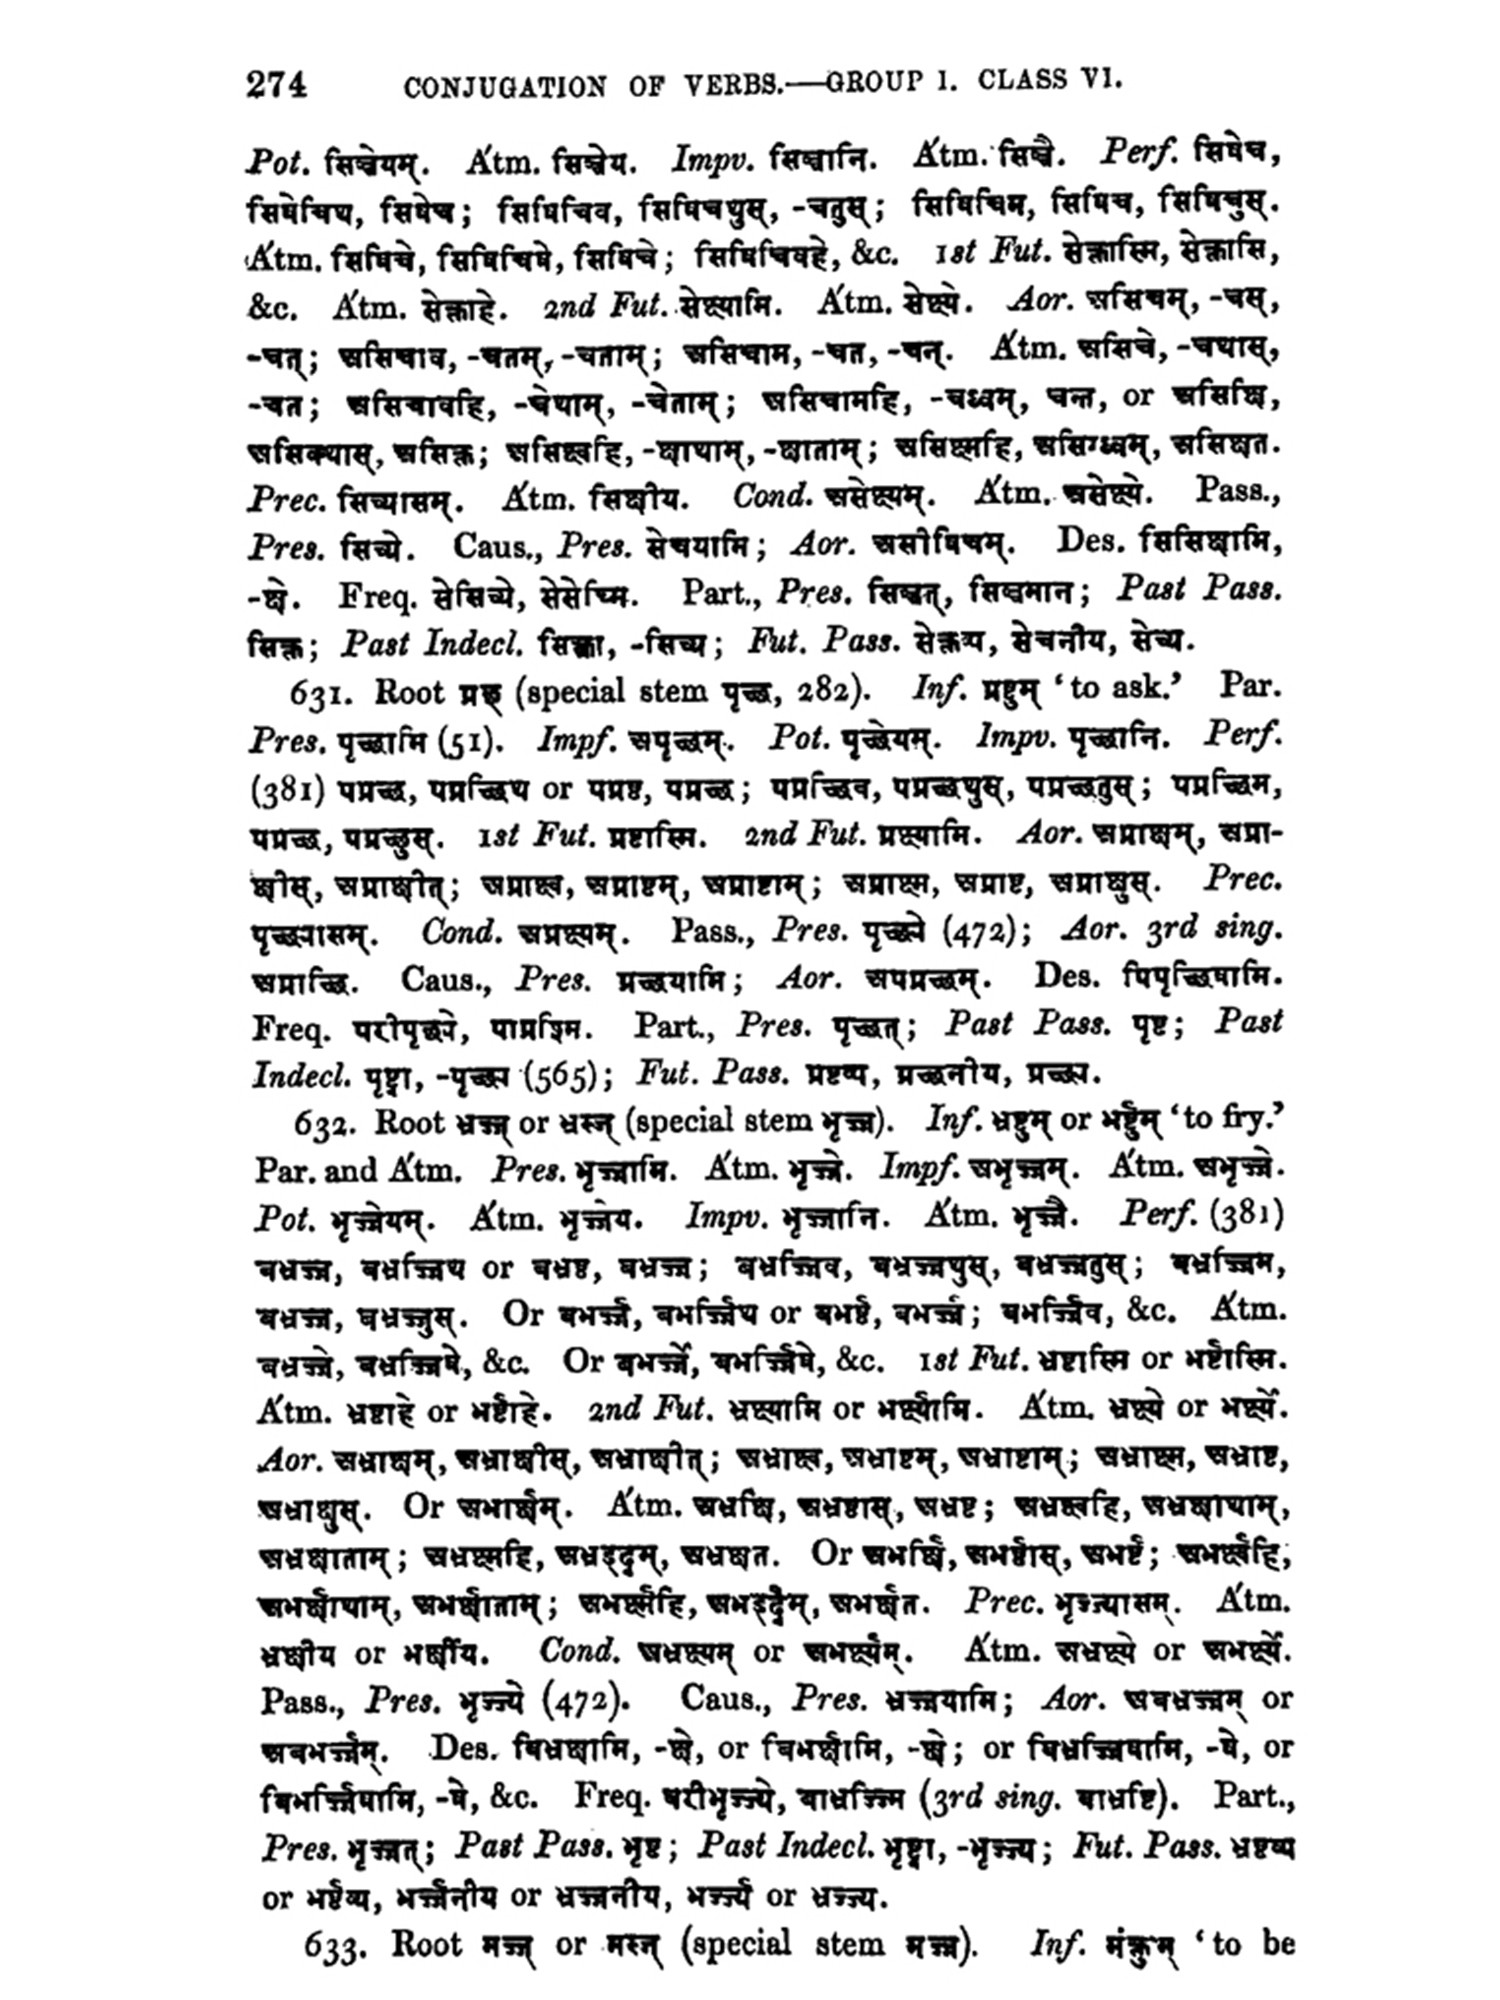 274 CONJUGATION OF VERBS.—GROUP I. CLASS VI.
Pot. सिञ्चेयम्. Átm. सिञ्चेय. Impv. सिञ्चानि. Átm. सिञ्चै. Perf. सिषेच,
सिषेचिथ, सिषेच; सिषिचिव, सिषिचथुस्, -चतुस्; सिषिचिम, सिषिच, सिषिचुस्.
Átm. सिषिचे, सिषिचिषे, सिषिचे; सिषिचिवहे, &c. 1st Fut. सेक्तास्मि, सेक्तासि,
&c. Átm. सेक्ताहे. 2nd Fut. सेक्ष्यामि. Átm. सेक्ष्ये. Aor. असिचम्, -चस्,
-चत्; असिचाव, -चतम्, -चताम्; असिचाम, -चत, -चन्. Átm. असिचे, -चथास्,
-चत; असिचावहि, -चेथाम्, -चेताम्; असिचामहि, -चध्वम्, चन्त, or असिक्षि,
असिक्थास्, असिक्त; असिक्ष्वहि, -क्षाथाम्, -क्षाताम्; असिक्ष्महि, असिग्ध्वम्, असिक्षत.
Prec. सिच्यासम्. Átm. सिक्षीय. Cond. असेक्ष्यम्. Átm. असेक्ष्ये. Pass.,
Pres. सिच्ये. Caus., Pres. सेचयामि; Aor. असीषिचम्. Des. सिसिक्षामि,
-क्षे. Freq. सेसिच्ये, सेसेच्मि. Part., Pres. सिञ्चत्, सिञ्चमान; Past Pass.
सिक्त; Past Indecl. सिक्त्वा, -सिच्य; Fut. Pass. सेक्तव्य, सेचनीय, सेच्य.
631. Root प्रछ् (special stem पृच्छ, 282). Inf. प्रष्टुम् ‘to ask.’ Par.
Pres. पृच्छामि (51). Impf. अपृच्छम्. Pot. पृच्छेयम्. Impv. पृच्छानि. Perf.
(381) पप्रच्छ, पप्रच्छिथ or पप्रष्ठ, पप्रच्छ; पप्रच्छिव, पप्रच्छथुस्, पप्रच्छतुस्; पप्रच्छिम,
पप्रच्छ, पप्रच्छुस्. 1st Fut. प्रष्टास्मि. 2nd Fut. प्रक्ष्यामि. Aor. अप्राक्षम्, अप्रा-
क्षीस्, अप्राक्षीत्; अप्राक्ष्व, अप्राष्टम्, अप्राष्टाम्; अप्राक्ष्म, अप्राष्ट, अप्राक्षुस्. Prec.
पृच्छ्यासम्. Cond. अप्रक्ष्यम्. Pass., Pres. पृच्छ्ये (472); Aor. 3rd sing.
अप्राच्छि. Caus., Pres. प्रच्छयामि; Aor. अपप्रच्छम्. Des. पिपृच्छिषामि.
Freq. परीपृच्छ्ये, पाप्रश्मि. Part., Pres. पृच्छत्; Past Pass. पृष्ट; Past
Indecl. पृष्ट्वा, -पृच्छ्य (565); Fut. Pass. प्रष्टव्य, प्रच्छनीय, प्रच्छ्य.
632. Root भ्रज्ज् or भ्रस्ज् (special stem भृज्ज). Inf. भ्रष्टुम् or भर्ष्टुम् ‘to fry.’
Par. and Átm. Pres. भृज्जामि. Átm. भृज्जे. Impf. अभृज्जम्. Átm. अभृज्जे.
Pot. भृज्जेयम्. Átm. भृज्जेय. Impv. भृज्जानि. Átm. भृज्जै. Perf. (381)
बभ्रज्ज, बभ्रज्जिथ or बभ्रष्ठ, बभ्रज्ज; बभ्रज्जिव, बभ्रज्जथुस्, बभ्रज्जतुस्; बभ्रज्जिम,
बभ्रज्ज, बभ्रज्जुस्. Or बभर्ज्ज, बभर्ज्जिथ or बभर्ष्ठ, बभर्ज्ज; बभर्ज्जिव, &c. Átm.
बभ्रज्जे, बभ्रज्जिषे, &c. Or बभर्ज्जे, बभर्ज्जिषे, &c. 1st Fut. भ्रष्टास्मि or भर्ष्टास्मि.
Átm. भ्रष्टाहे or भर्ष्टाहे. 2nd Fut. भ्रक्ष्यामि or भर्क्ष्यामि. Átm. भ्रक्ष्ये or भर्क्ष्ये.
Aor. अभ्राक्षम्, अभ्राक्षीस्, अभ्राक्षीत्; अभ्राक्ष्व, अभ्राष्टम्, अभ्राष्टाम्; अभ्राक्ष्म, अभ्राष्ट,
अभ्राक्षुस्. Or अभार्क्षम्. Átm. अभ्रक्षि, अभ्रष्ठास्, अभ्रष्ट; अभ्रक्ष्वहि, अभ्रक्षाथाम्,
अभ्रक्षाताम्; अभ्रक्ष्महि, अभ्रड्ढ्वम्, अभ्रक्षत. Or अभर्क्षि, अभर्ष्ठास्, अभर्ष्ट; अभर्क्ष्वहि,
अभर्क्षाथाम्, अभर्क्षाताम्; अभर्क्ष्महि, अभर्ड्ढ्वम्, अभर्क्षत. Prec. भृज्ज्यासम्. Átm.
भ्रक्षीय or भर्क्षीय. Cond. अभ्रक्ष्यम् or अभर्क्ष्यम्. Átm. अभ्रक्ष्ये or अभर्क्ष्ये.
Pass., Pres. भृज्ज्ये (472). Caus., Pres. भ्रज्जयामि; Aor. अबभ्रज्जम् or
अबभर्ज्जम्. Des. बिभ्रक्षामि, -क्षे, or बिभर्क्षामि, -क्षे; or बिभ्रज्जिषामि, -षे, or
बिभर्ज्जिषामि, -षे, &c. Freq. बरीभृज्ज्ये, बाभ्रज्ज्मि (3rd sing. बाभ्रष्टि). Part.,
Pres. भृज्जत्; Past Pass. भृष्ट; Past Indecl. भृष्ट्वा, -भृज्ज्य; Fut. Pass. भ्रष्टव्य
or भर्ष्टव्य, भर्ज्जनीय or भ्रज्जनीय, भर्ज्ज्य or भ्रज्ज्य.
633. Root मज्ज् or मस्ज् (special stem मज्ज). Inf. मंक्तुम् ‘to be